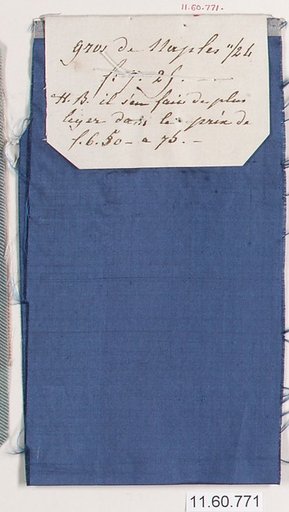 11.60.771.
gros de Naples 11/24
f. 7. 25. —
N.B. il s'en fait de plus
leger dans le prix de
f. 6. 50 - a 75. -
11.60.771